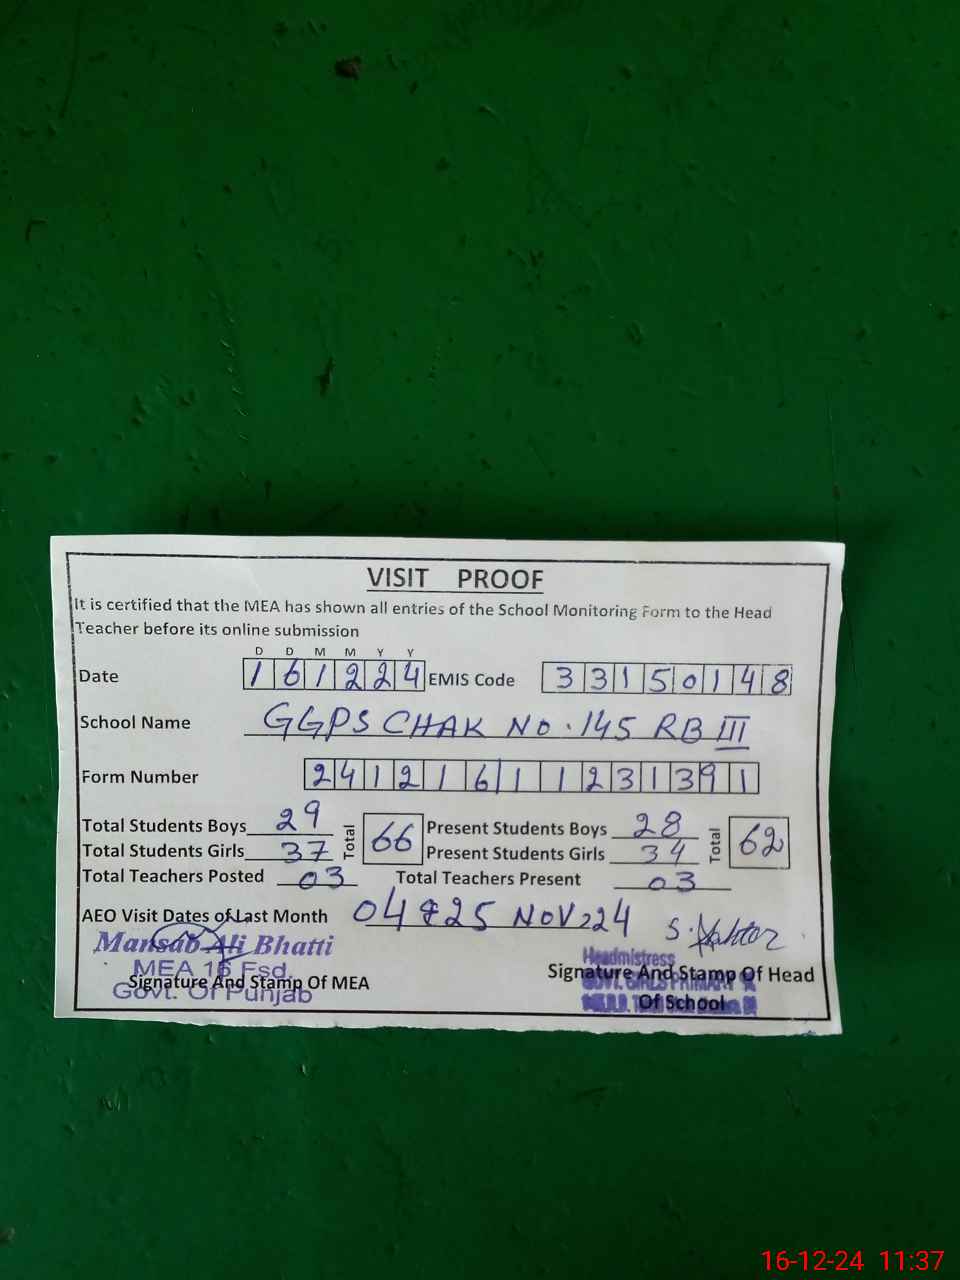 VISIT PROOF
It is certified that the MEA has shown all entries of the School Monitoring Form to the Head
Teacher before its online submission
D D M M Y Y
Date 161224 EMIS Code 33150148
School Name GGPS CHAK NO. 145 RB III
Form Number 24121611231391
Total Students Boys 29 Total 66 Present Students Boys 28 Total 62
Total Students Girls 37 Present Students Girls 34
Total Teachers Posted 03 Total Teachers Present 03
AEO Visit Dates of Last Month 04 & 25 NOV 224
Mansab Ali Bhatti
MEA 16 Fsd.
Govt. Of Punjab
Signature And Stamp Of MEA
Headmistress
GOVT. GIRLS PRIMARY
Signature And Stamp Of Head
Of School
16-12-24 11:37